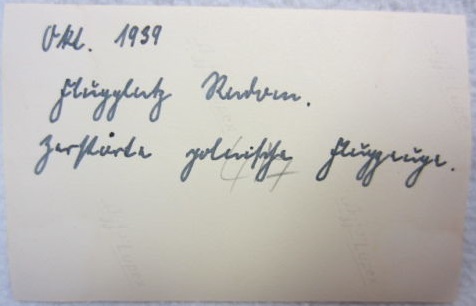 Okt. 1939
Flugplatz Radom.
Zerstörte polnische Flugzeuge.
47